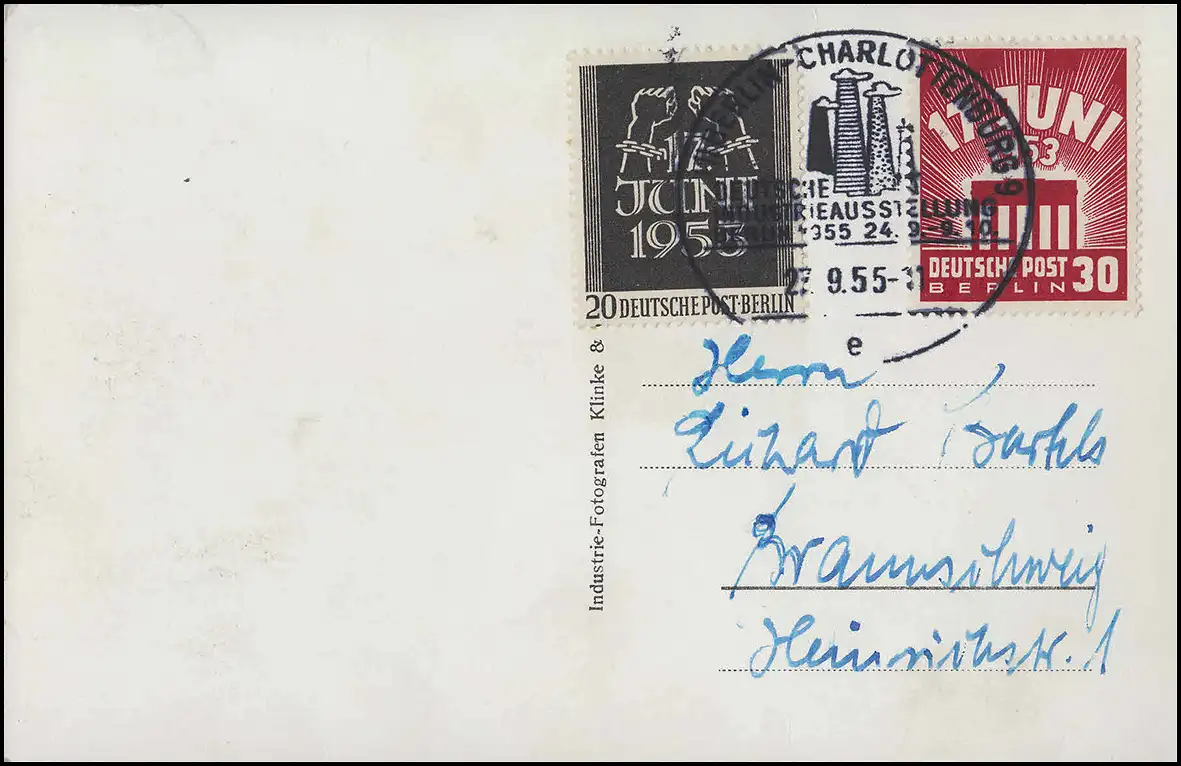 17.
JUNI
1953
20 DEUTSCHE POST·BERLIN
BERLIN-CHARLOTTENBURG 9
DEUTSCHE
INDUSTRIEAUSSTELLUNG
BERLIN 1955 24. 9.-9. 10.
9.55-
e
17. JUNI
53
DEUTSCHE POST
BERLIN 30
Industrie-Fotografen Klinke &
Herrn
Bartels
Braunschweig
Heinrichstr. 1